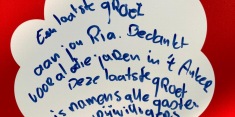 Een laatste groet
aan jou Ria. Bedankt
voor al die jaren in 't Anker
Deze laatste groet
is namens alle gasten
vrijwilligers